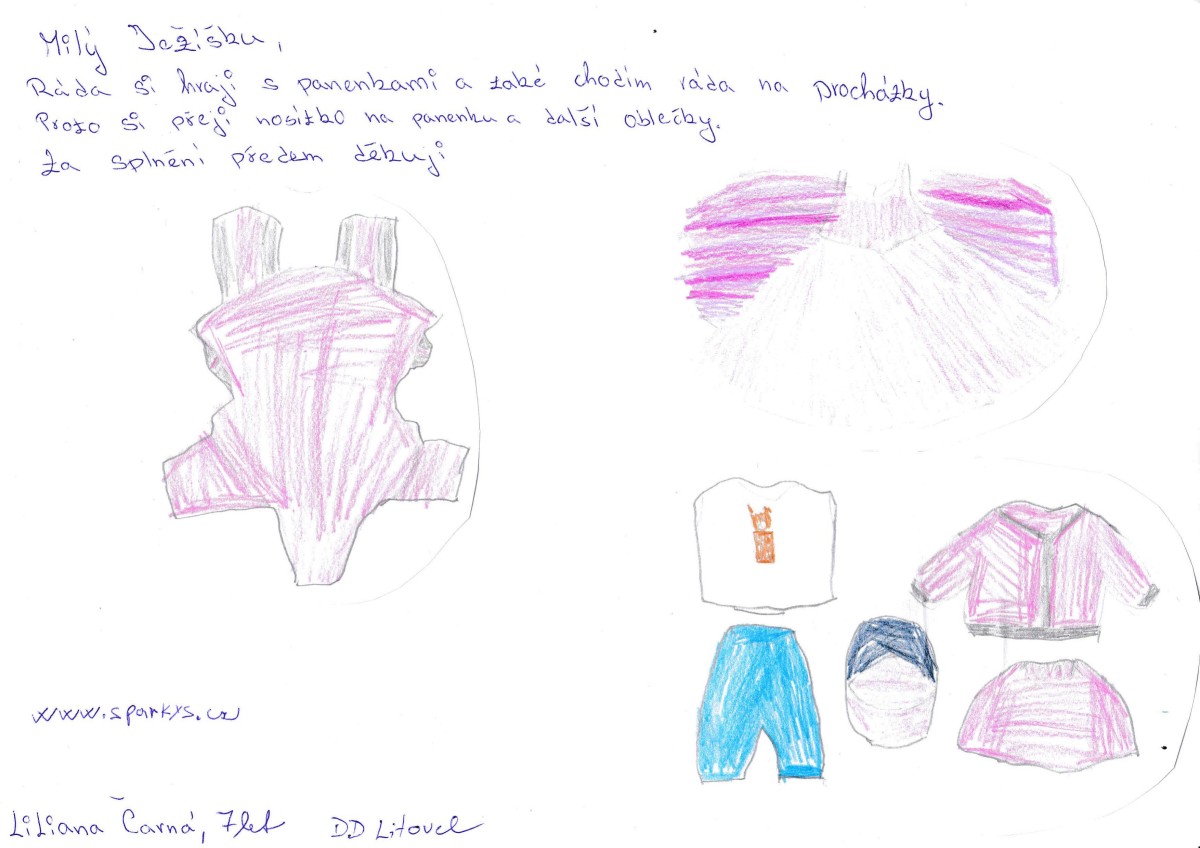 Milý Ježíšku,
Ráda si hraji s panenkami a také chodím ráda na procházky.
Proto si přeji nosítko na panenku a další oblečky.
Za splnění předem děkuji
www.sparkys.cz
Liliana Čarná, 7 let DD Litovel